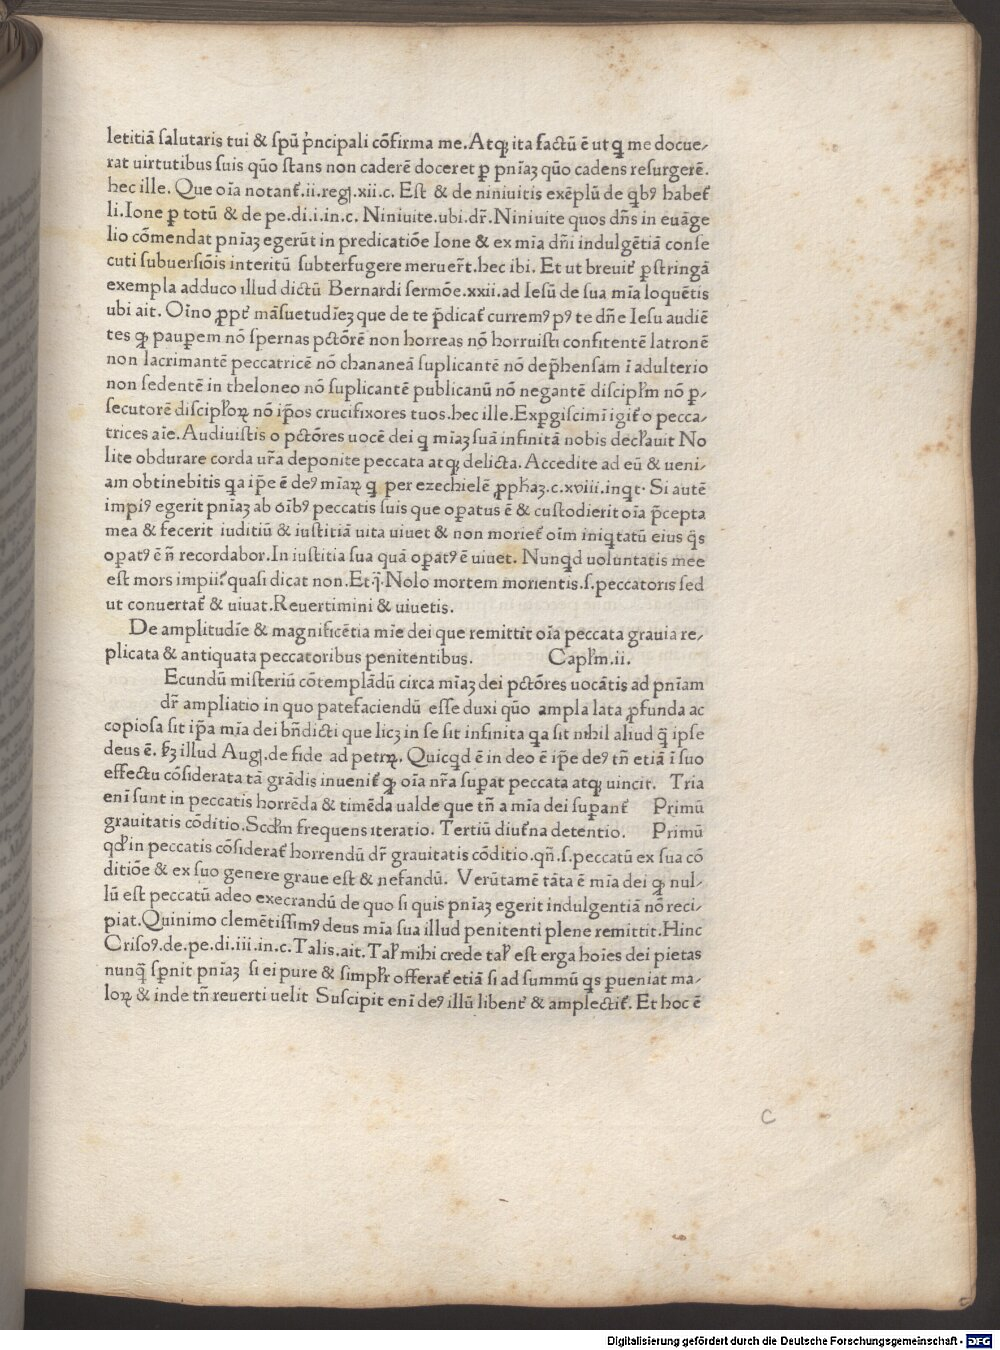 letitiā salutaris tui & spū pͥncipali cōfirma me. Atqꝫ ita factū ē ut ꝗ me docue⸗
rat uirtutibus suis quo̅ stans non caderē doceret ꝑ pn̄iaꝫ quo̅ cadens resurgerē.
hec ille. Que oi̅a notant᷑.ii.regꝭ.xii.c. Est & de niniuitis exēplū de ꝗbꝰ habet᷑
li.Ione ꝑ totū & de pe.di.i.in.c. Niniuite.ubi.dr̄.Niniuite quos dn̄s in euāge
lio cōmendat pn̄iaꝫ egerūt in predicatiōe Ione & ex mi̅a dn̄i indulgētiā conse
cuti subuersiōis interitū subterfugere meruer̄t.hec ibi. Et ut breuit᷑ ꝑstringā
exempla adduco illud dictū Bernardi sermōe.xxii.ad Iesū de sua mi̅a loquētis
ubi ait. Oi̅no ꝓpt᷑ māsuetudi̅eꝫ que de te p̄dicat᷑ curremꝰ pꝰ te dn̄e Iesu audiē
tes ꝙ pauꝑem nō spernas pctōrē non horreas nō horruisti confitentē latronē
non lacrimantē peccatricē nō chananeā suplicantē nō dep̄hensam ī adulterio
non sedentē in theloneo nō suplicantē publicanū nō negantē discipl̄m nō ꝑ⸗
secutorē discipl̄oꝝ nō ip̄os crucifixores tuos.hec ille.Expgiscimī igit᷑ o pecca⸗
trices ai̅e.Audiuistis o pctōres uocē dei ꝗ mi̅aꝫ suā infinitā nobis decl̄auit No
lite obdurare corda ur̄a deponite peccata atqꝫ delicta. Accedite ad eū & ueni⸗
am obtinebitis ꝗa ip̄e ē deꝰ mi̅aꝝ ꝗ per ezechielē ꝓph̄aꝫ.c.xviii.inqt. Si autē
impiꝰ egerit pn̄iaꝫ ab oi̅bꝰ peccatis suis que oꝑatus ē & custodierit oi̅a p̄cepta
mea & fecerit iuditiū & iustitiā uita uiuet & non moriet᷑ oi̅m iniqtatū eius ꝗ̄s
oꝑatꝰ ē n̄ recordabor.In iustitia sua quā oꝑatꝰ ē uiuet. Nunqd uoluntatis mee
est mors impii? quasi dicat non.Et ꝗ̄.Nolo mortem morientis.s.peccatoris sed
ut conuertat᷑ & uiuat.Reuertimini & uiuetis.
De amplitudi̅e & magnificētia mi̅e dei que remittit oi̅a peccata grauia re⸗
plicata & antiquata peccatoribus penitentibus. Capl̄m.ii.
Ecundū misteriū cōtemplādū circa mi̅aꝫ dei pctōres uocātis ad pn̄iam
dr̄ ampliatio in quo patefaciendū esse duxi quo̅ ampla lata ꝓfunda ac
copiosa sit ip̄a mi̅a dei bn̄dicti que licꝫ in se sit infinita ꝗa sit nihil aliud ꝗ̄ ipse
deus ē. ẜꝫ illud Augꝭ.de fide ad petrꝝ. Quicqd ē in deo ē ip̄e deꝰ tn̄ etiā ī suo
effectu cōsiderata tā grādis inuenit᷑ ꝙ oi̅a nr̄a suꝑat peccata atqꝫ uincit. Tria
enī sunt in peccatis horrēda & timēda ualde que tn̄ a mi̅a dei suꝑant᷑ Primū
grauitatis cōditio.Scd̄m frequens iteratio. Tertiū diut᷑na detentio. Primū
qd̄ in peccatis cōsiderat᷑ horrendū dr̄ grauitatis cōditio.qn̄.s.peccatū ex sua cō
ditiōe & ex suo genere graue est & nefandū. Verūtamē tāta ē mi̅a dei ꝙ nul⸗
lū est peccatū adeo execrandū de quo si quis pn̄iaꝫ egerit indulgentiā nō reci⸗
piat.Quinimo clemētissimꝰ deus mi̅a sua illud penitenti plene remittit.Hinc
Crisoꝰ.de.pe.di.iii.in.c.Talis.ait.Tal̄ mihi crede tal̄ est erga hoi̅es dei pietas
nunꝗ̄ sꝑnit pn̄iaꝫ si ei pure & simpl̄r offerat᷑ etiā si ad summū ꝗs ꝑueniat ma⸗
loꝝ & inde tn̄ reuerti uelit Suscipit enī deꝰ illū libent᷑ & amplectit᷑. Et hoc ē
c
Digitalisierung gefördert durch die Deutsche Forschungsgemeinschaft - DFG